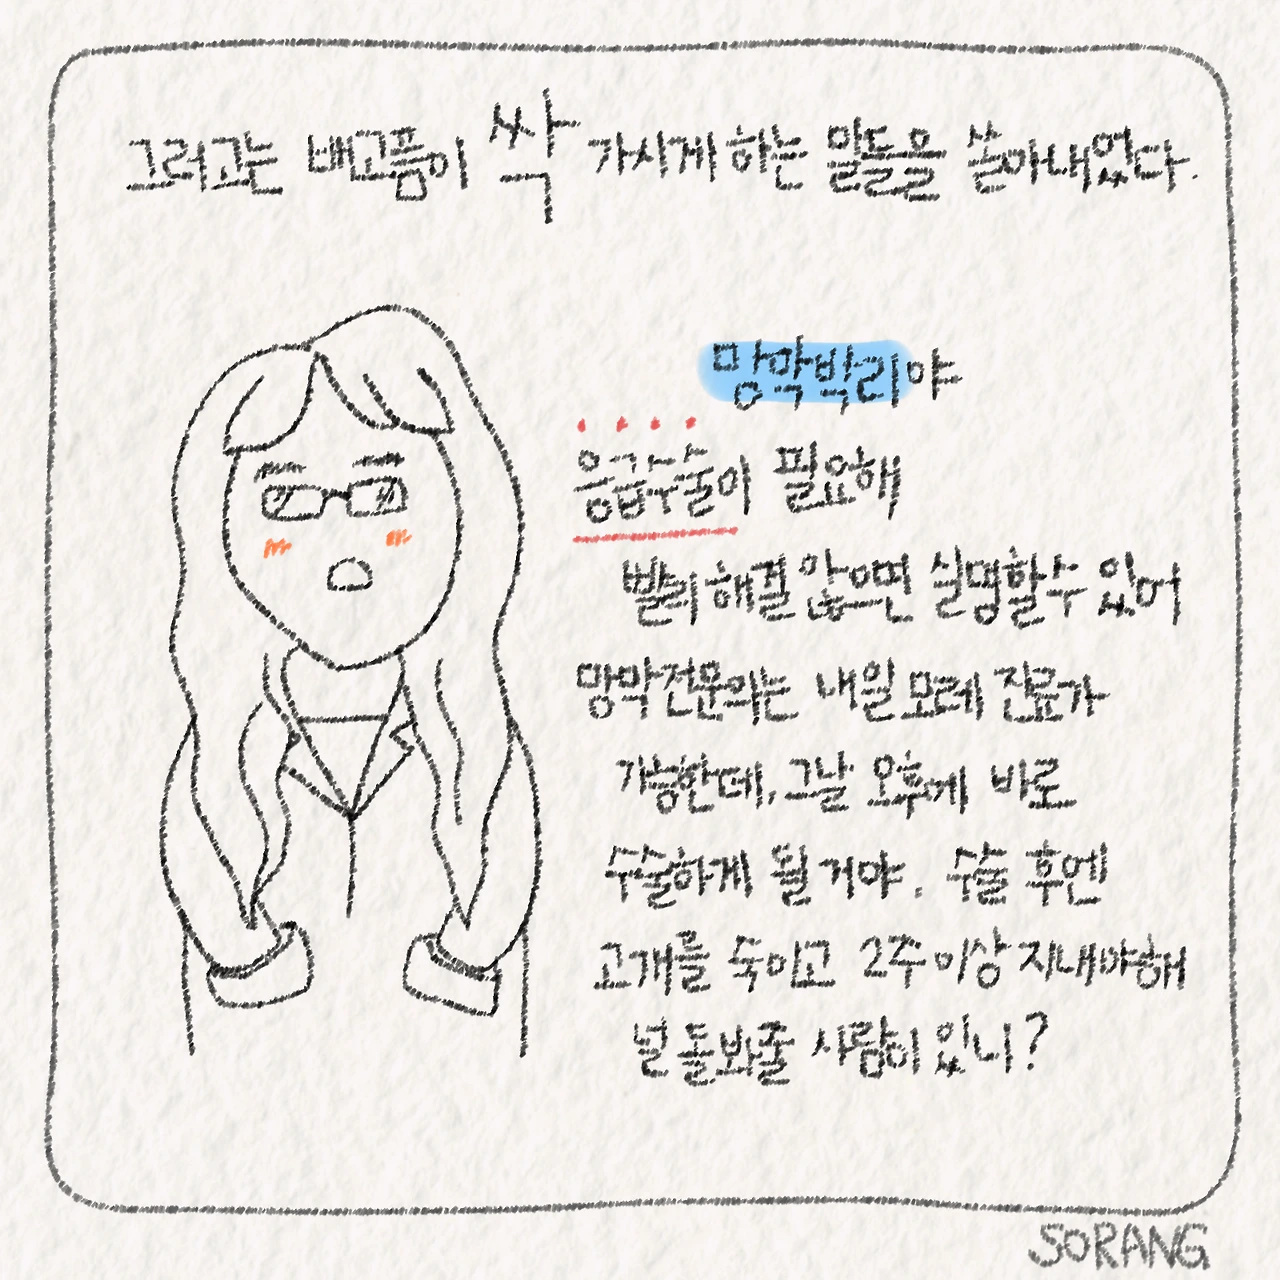 그러고는 배고픔이 싹 가시게 하는 말들을 쏟아내었다.
망막박리야
응급수술이 필요해
빨리 해결 않으면 실명할 수 있어
망막전문의는 내일 모레 진료가
가능한데, 그날 오후에 바로
수술하게 될 거야. 수술 후엔
고개를 숙이고 2주 이상 지내야해
널 돌봐줄 사람이 있니?
SORANG